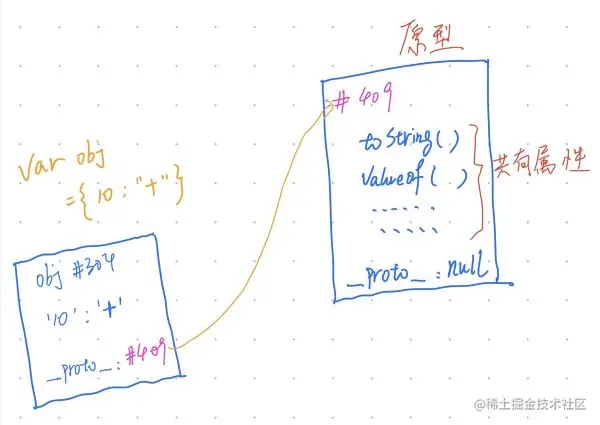 原型
#409
toString(.)
valueof(.)
......
.....
共有属性
__proto__:null
var obj
={10:"+"}
obj #304
'10':'+'
__proto__:#409
@稀土掘金技术社区